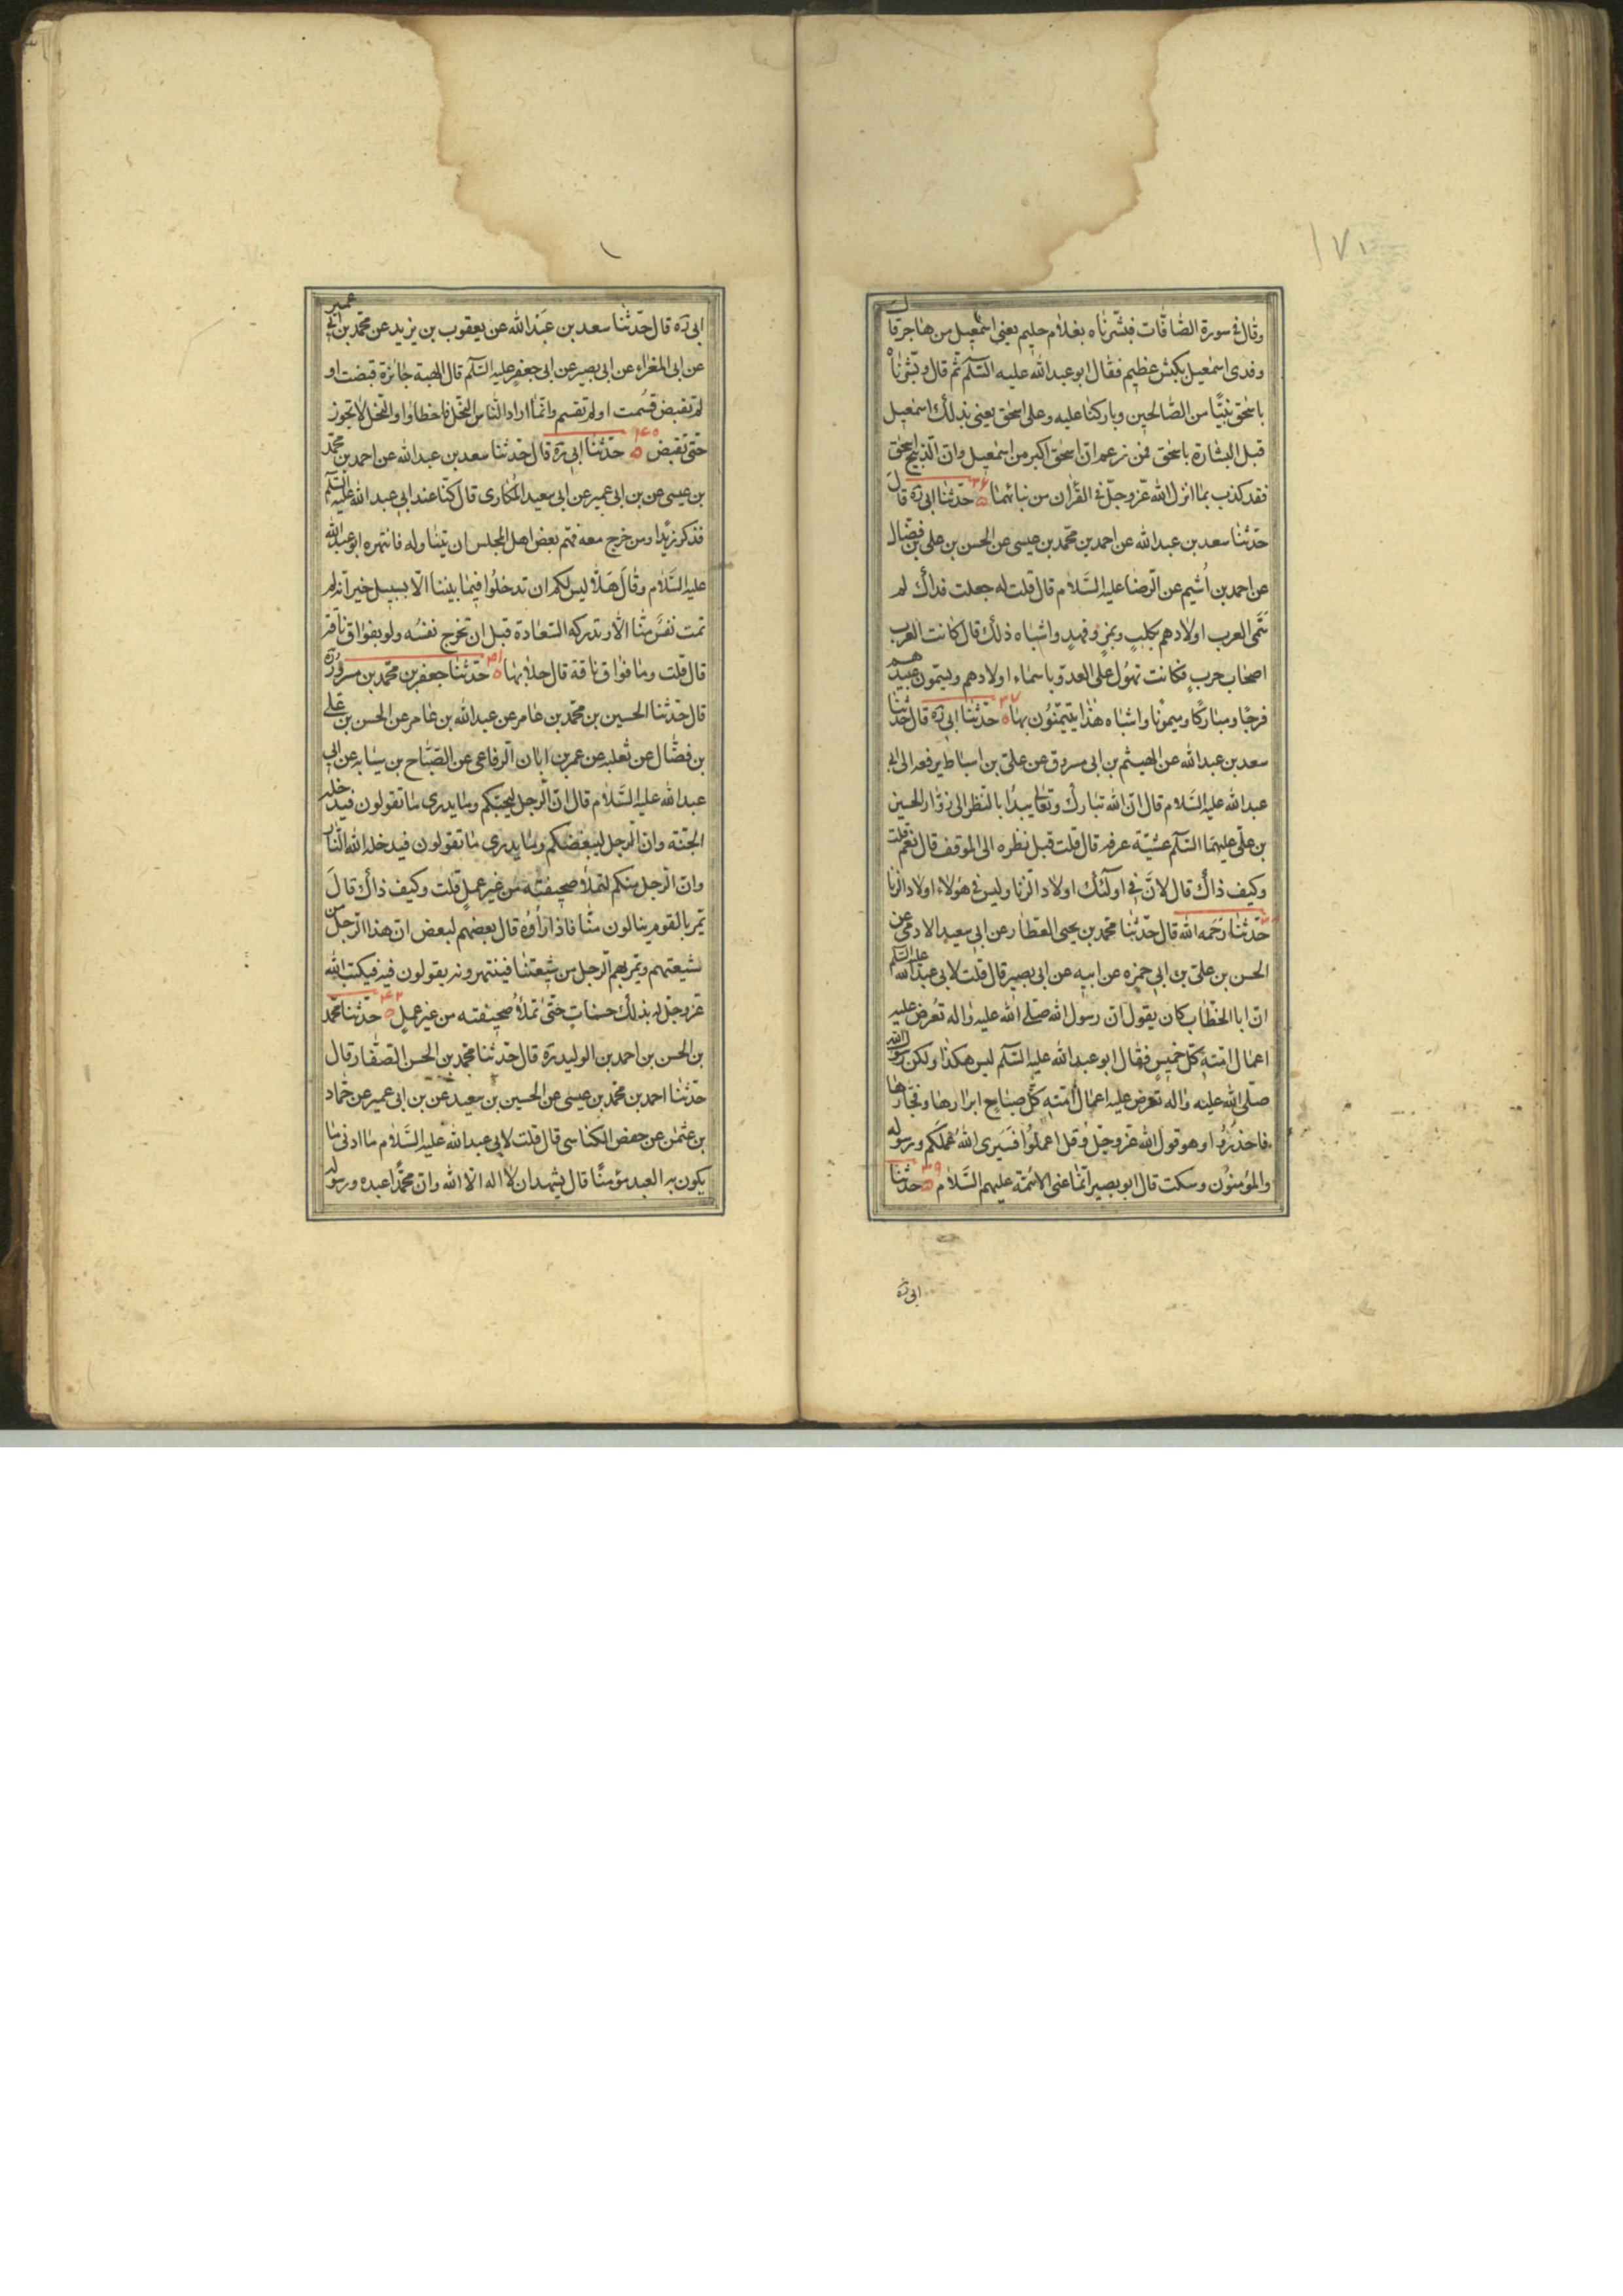 ١٧١
وقال فى سورة الصافات فبشّرناه بغلام حليم يعنى اسمعيل من هاجر قال
وفدى اسمعيل بكبش عظيم فقال ابو عبدالله عليه السّلم ثم قال وبشرناه
باسحق نبيّا من الصّالحين وباركنا عليه وعلى اسحق يعنى بذلك اسمعيل
قبل البشارة باسحق فمن زعم ان اسحق اكبر من اسمعيل وان الذبيح اسحق
فقد كذب بما انزل الله عزّ وجلّ فى القرأن من نبائهما ٣٦ حدّثنا ابى ره قال
حدّثنا سعد بن عبدالله عن احمد بن محمّد بن عيسى عن الحسن بن على بن فضّال
عن احمد بن اُشيم عن الرضا عليه السَّلام قال قلت له جعلت فداك لم
سَمّى العرب اولادهم بكلبٍ ونمرٍ وفهدٍ واشباه ذلك قال كانت العرب
اصحاب حربٍ فكانت تهوّل على العدوّ باسماء اولادهم ويسمّون عبيدهم
فرجًا ومباركًا وميمونًا واشباه هذا يتيمّنون بها ٣٧ حدّثنا ابى ره قال حدّثنا
سعد بن عبدالله عن الهيثم بن ابى مسروق عن علىّ بن اسباط يرفعه الى ابى
عبدالله عليه السَّلام قال انّ الله تبارك وتعالى يبداُ بالنّظر الى زوّار الحسين
بن علىّ عليهما السّلم عشيّة عرفه قال قلت قبل نظره الى الموقف قال نعم قلت
وكيف ذاك قال لانَّ فى اولئك اولاد الزّنا وليس فى هؤلاء اولاد الزنا
٣٨ حدّثنا رَحمه الله قال حدّثنا محمد بن يحيى العطار عن ابى سعيد الادمى عن
الحسن بن علىّ بن ابى حمزه عن ابيه عن ابى بصير قال قلت لابى عبدالله عليه السّلم
انّ ابا الخطّاب كان يقول انّ رسول الله صلّى الله عليه واله تُعرض عليه
اعمال امّته كلّ خميسٍ فقال ابو عبدالله عليه السّلم ليس هكذا ولكن رسول الله
صلّى الله عليه واله تعرض عليه اعمال اُمّته كلّ صباحٍ ابرارها وفجّارها
فاحذرُوا وهو قول الله عزّ وجلّ وَقل اعملُوا فسَيرى اللهُ عَملَكم ورسوله
والمؤمنُون وسكت قال ابو بصير انّما عنى الائمّة عليهم السَّلام ٣٩ حدّثنا
ابى ره
ابى ره قال حدّثنا سعد بن عبدالله عن يعقوب بن يزيد عن محمّد بن ابى عمير
عن ابى المغراء عن ابى بصير عن ابى جعفرٍ عليه السّلم قال الهبة جائزة قبضت او
لم تقبض قسُمت او لم تقسم وانّما اراد النّاس النّحل فاخطاوا والنّحل لا تجوز
حتّى تقبض ٤٠ حدّثنا ابى ره قال حدّثنا سعد بن عبدالله عن احمد بن محمّد
بن عيسى عن بن ابى عمير عن ابى سعيد المكارى قال كنّا عند ابى عبدالله عليه السّلم
فذكر زيدًا ومن خرج معه فهمّ بعض اهل المجلس ان يتناوله فانتهره ابو عبدالله
عليه السَّلام وقالَ مَهلًا ليس لكم ان تدخلُوا فيما بيننا الّا بسبيل خير انّه لم
تمت نفسٌ منّا الّا وتدركه السّعادة قبل ان تخرج نفسُه ولو بفواق ناقة
قال قلت وما فواق ناقة قال حلابها ٤١ حدّثنا جعفر بن محمّد بن مسرور ره
قال حدّثنا الحسين بن محمّد بن عامر عن عبدالله بن عامر عن الحسن بن على
بن فضّال عن ثعلبه عن عمر بن ابان الرفاعى عن الصّبّاح بن سيابه عن ابى
عبدالله عليه السَّلام قال انّ الرجل ليحبّكم وما يدرى ما تقولون فيدخله
الجنّة وان الرجل ليبغضكم وما يدرى ما تقولون فيدخله الله النّار
وان الرجل منكم لتملأ صحيفته من غير عملٍ قلت وكيف ذاك قالَ
يمرّ بالقوم ينالون منّا فاذا رأوُه قال بعضهم لبعض انّ هذا الرجل من
شيعتهم ويمرّ بهم الرجل من شيعتنا فينتهرونه يقولون فيه فيكتب الله
عزّ وجلّ له بذلك حسناتٍ حتّى تملأُ صحيفته من غير عملٍ ٤٢ حدّثنا محمّد
بن الحسن بن احمد بن الوليد ره قال حدّثنا محمّد بن الحسن الصّفّار قال
حدّثنا احمد بن محمّد بن عيسى عن الحسين بن سعيد عن بن ابى عمير عن حمّاد
بن عثمن عن حفص الكناسى قال قلت لابى عبدالله عليه السَّلام ما ادنى ما
يكون به العبد مؤمنًا قال يشهد ان لا اله الا الله وان محمّدًا عبده ورسوله